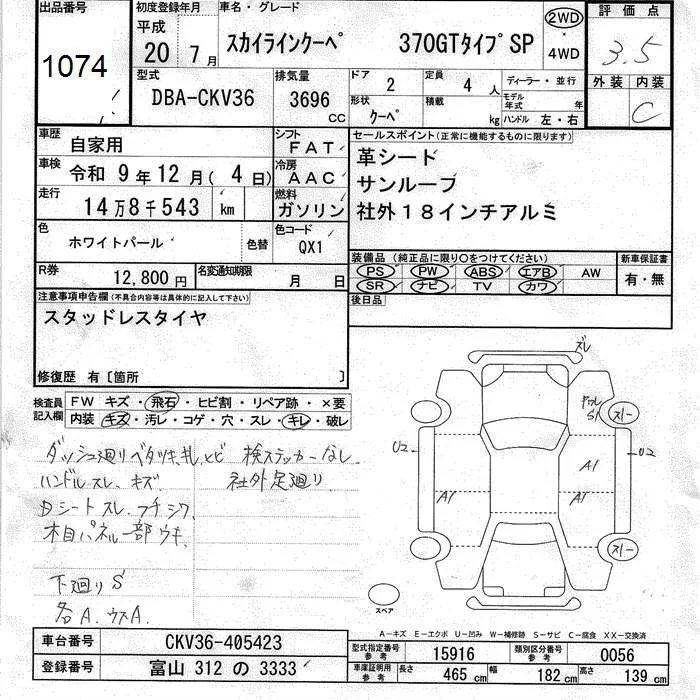 出品番号 初度登録年月 車名・グレード 評価点
1074
平成 20 7月
スカイラインクーペ 370GTタイプSP
2WD・4WD
3.5
型式 排気量 ドア 定員 ディーラー・並行 外装 内装
DBA-CKV36 3696 CC
2 4 人
形状 積載 モデル年式 年
クーペ kg ハンドル 左・右
C
車歴 自家用 シフト FAT セールスポイント(正常に機能するものに限ります)
車検 令和 9年12月(4日) 冷房 AAC
革シード
サンルーフ
社外18インチアルミ
走行 14万8千543 km 燃料 ガソリン
色 ホワイトパール 色替 色コード QX1
装備品(純正品に限り〇をつけてください) 新車保証書
PS PW ABS エアB AW 有・無
SR ナビ TV カワ
R券 12,800円 名変通知期限 月 日
後日品
注意事項申告欄(不具合内容等は具体的に記入して下さい)
スタッドレスタイヤ
修復歴 有〔箇所 〕
検査員記入欄 FW キズ・飛石・ヒビ割・リペア跡・×要
内装 キズ・汚レ・コゲ・穴・スレ・キレ・破レ
ダッシュ廻りベタツキ、ヒビ 検ステッカーなし
ハンドルスレ、キズ 社外足廻り
Dシートスレ、フチシワ
木目パネル一部ウキ
下廻りS
各A、ウスA
ズレ
S1
スレ
U2
A1
U2
A1
A1
スレ
スペア
A-キズ E-エクボ U-凹み W-補修跡 S-サビ C-腐食 XX-交換済
車台番号 CKV36-405423
登録番号 富山 312 の 3333
型式指定番号 参考 15916 類別区分番号 参考 0056
車庫証明用 参考 長さ 465 cm 幅 182 cm 高さ 139 cm